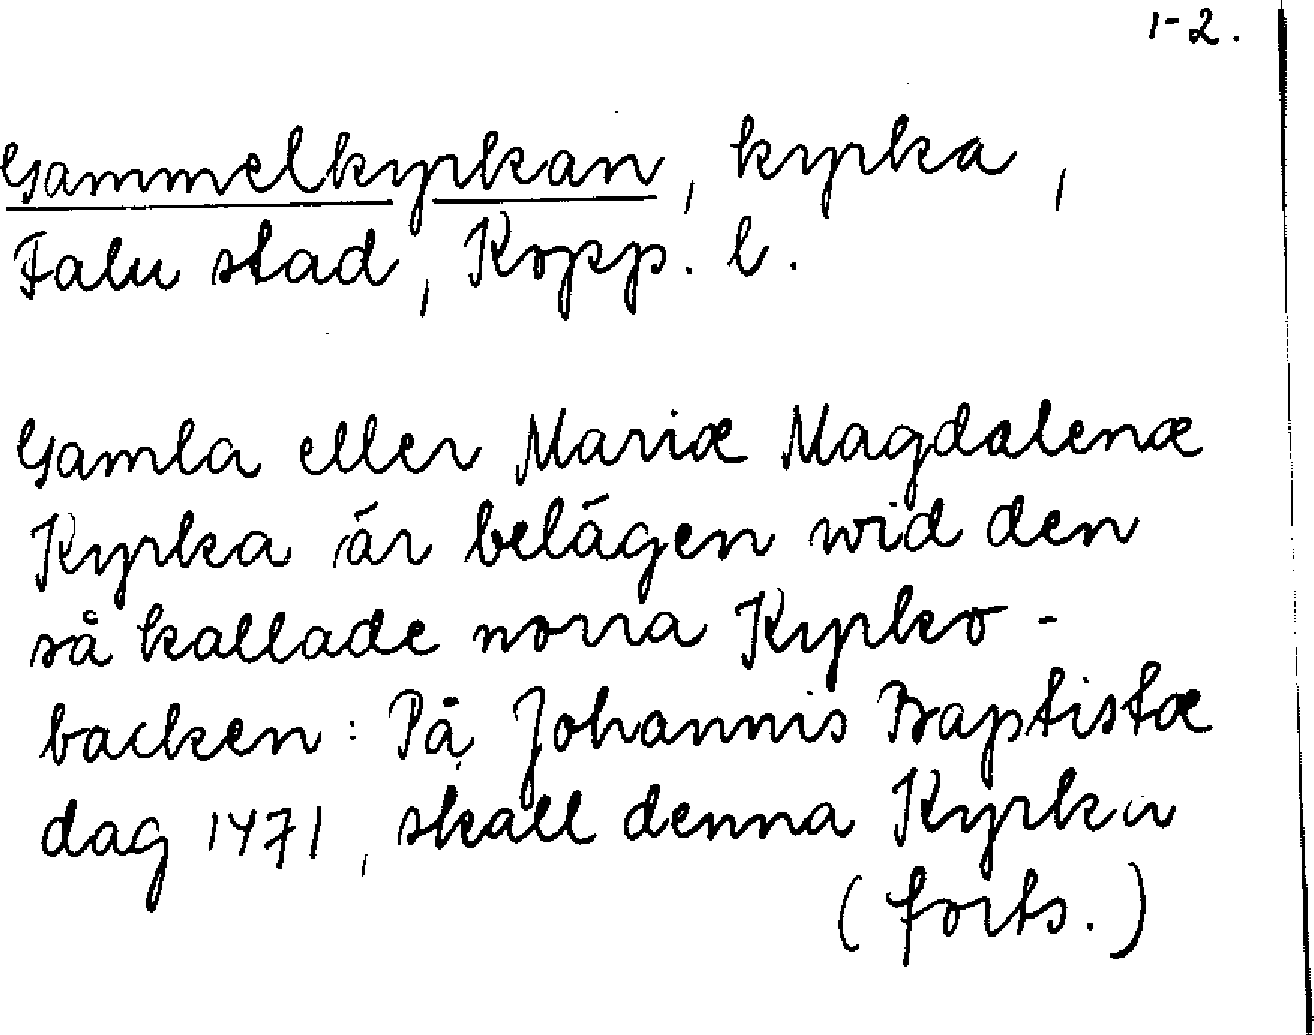 1-2.
Gammelkyrkan, kyrka,
Falu stad, Kopp. l.
Gamla eller Mariæ Magdalenæ
Kyrka är belägen wid den
så kallade norra Kyrko-
backen: På Johannis Baptistæ
dag 1471, skall denna Kyrka
(forts.)